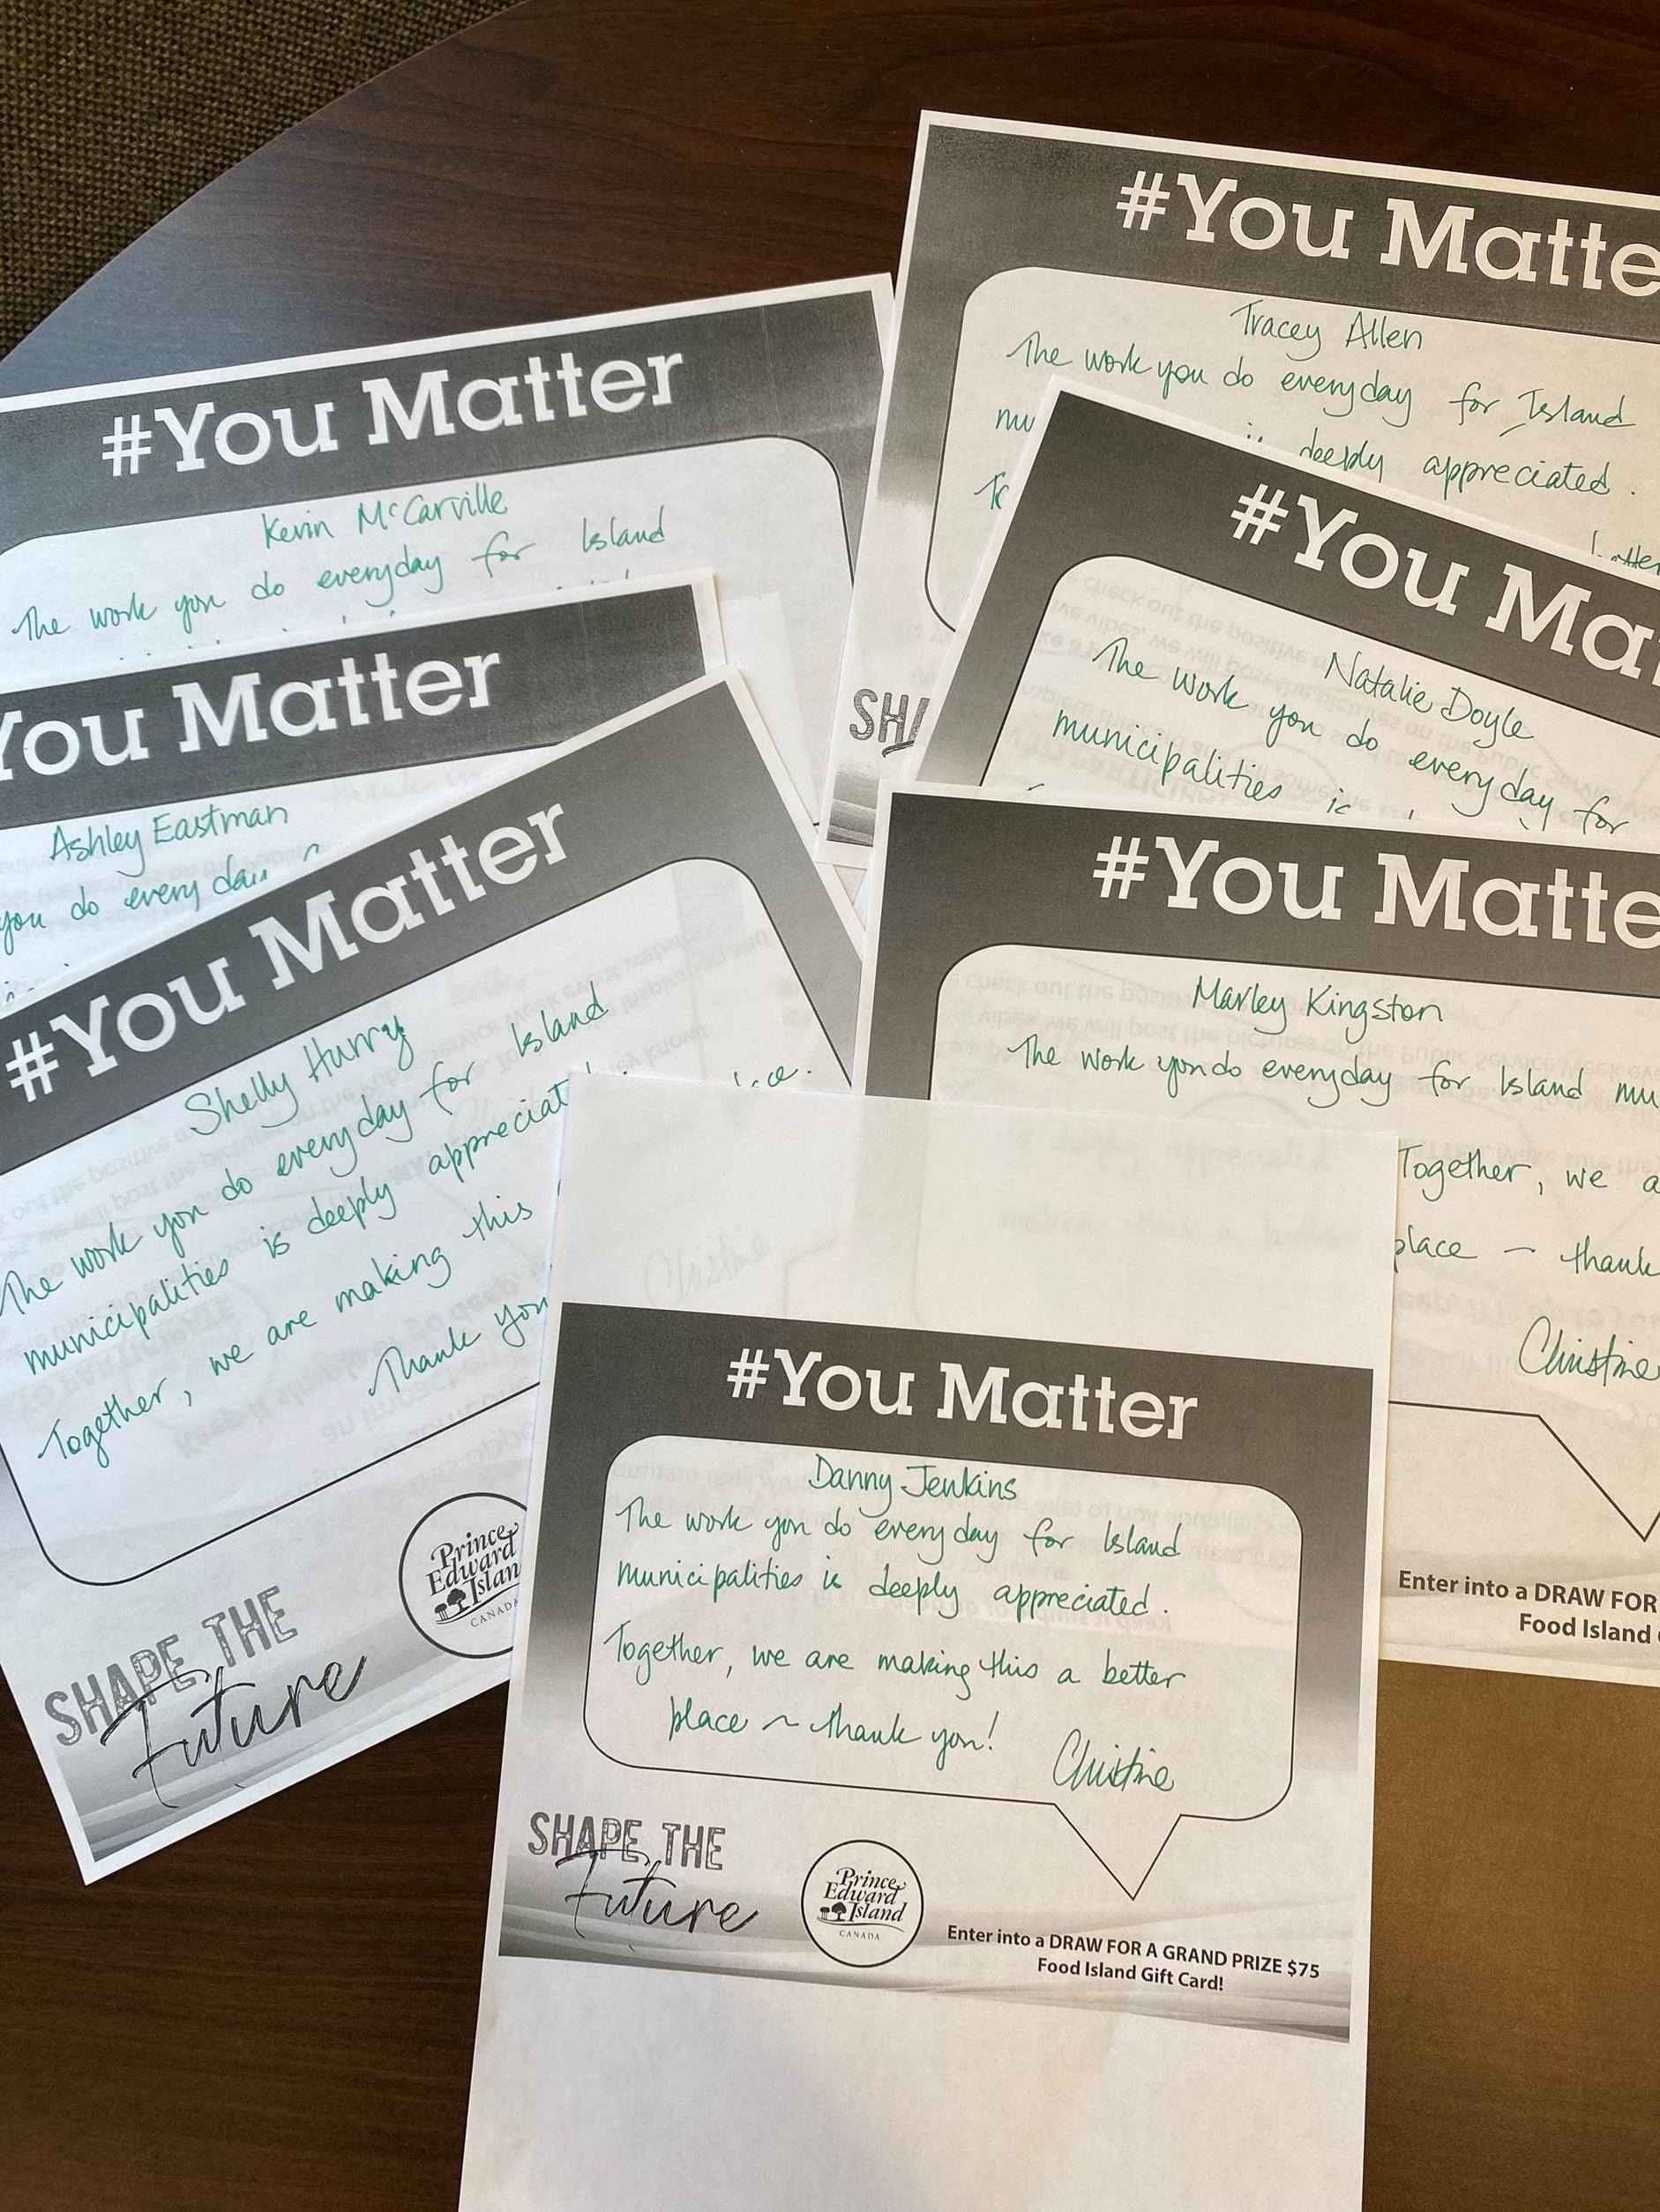 #You Matte
Tracey Allen
The work you do everyday for Island
mu
deeply appreciated.
#You Matter
Kevin McCarville
The work you do everyday for Island
SHA
#You Ma
Natalie Doyle
The work you do everyday for
municipalities is
You Matter
Ashley Eastman
you do every day
#You Matter
Shelly Hurry
The work you do everyday for Island
municipalities is deeply appreciat
Together, we are making this
Thank you
SHAPE THE
Future
Prince
Edward
Islan
CANADA
#You Matte
Marley Kingston
The work you do everyday for Island mu
Together, we a
place ~ thank
Christine
Enter into a DRAW FOR
Food Island
#You Matter
Danny Jenkins
The work you do everyday for Island
municipalities is deeply appreciated.
Together, we are making this a better
place ~ thank you!
Christine
SHAPE THE
Future
Prince
Edward
Island
CANADA
Enter into a DRAW FOR A GRAND PRIZE $75
Food Island Gift Card!